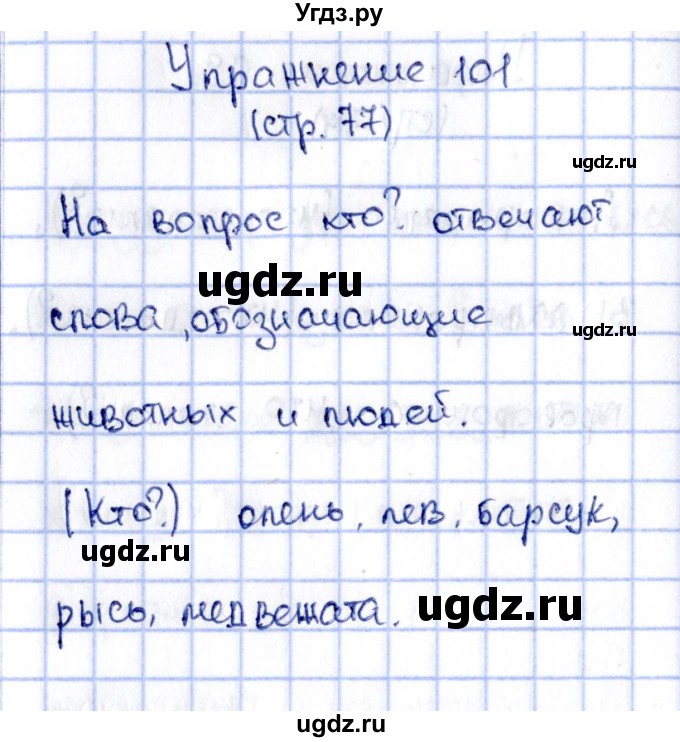 Угдз.ру
Упражнение 101
(стр. 77)
ugdz.ru
На вопрос кто? отвечают
ugdz.ru
слова, обозначающие
ugdz.ru
животных и людей.
(Кто?) олень, лев, барсук,
ugdz.ru
рысь, медвежата.
ugdz.ru
ugdz.ru